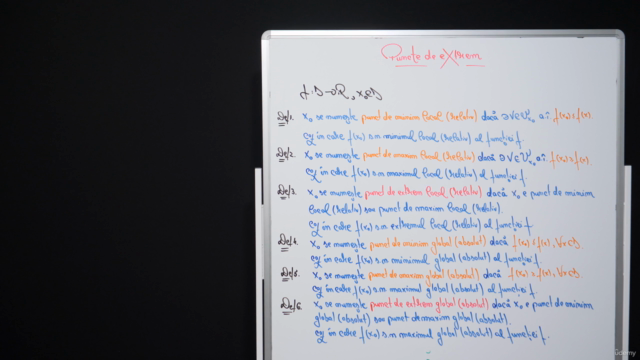 Puncte de extrem
f: D → R, x₀ ∈ D
Def 1. x₀ se numește punct de minim local (relativ) dacă ∃ V ∈ 𝒱x₀ a.î. f(x₀) ≤ f(x).
caz în care f(x₀) s.n minimul local (relativ) al funcției f.
Def 2. x₀ se numește punct de maxim local (relativ) dacă ∃ V ∈ 𝒱x₀ a.î. f(x₀) ≥ f(x).
caz în care f(x₀) s.n maximul local (relativ) al funcției f
Def 3. x₀ se numește punct de extrem local (relativ) dacă x₀ e punct de minim
local (relativ) sau punct de maxim local (relativ).
caz în care f(x₀) s.n extremul local (relativ) al funcției f
Def 4. x₀ se numește punct de minim global (absolut) dacă f(x₀) ≤ f(x), ∀ x ∈ D
caz în care f(x₀) s.n minimul global (absolut) al funcției f.
Def 5. x₀ se numește punct de maxim global (absolut) dacă f(x₀) ≥ f(x), ∀ x ∈ D
caz în care f(x₀) s.n maximul global (absolut) al funcției f.
Def 6. x₀ se numește punct de extrem global (absolut) dacă x₀ e punct de minim
global (absolut) sau punct de maxim global (absolut).
caz în care f(x₀) s.n maximul global (absolut) al funcției f.
Udemy